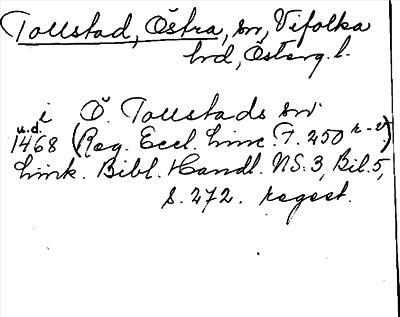 Tollstad, Östra, sn, Vifolka
hrd, Österg. l.
i Ö. Tollstads sn
u.d.
1468 (Reg. Eccl. Linc. F. 250 r-v)
Link. Bibl. Handl. NS. 3, Bil. 5,
s. 272. regest.